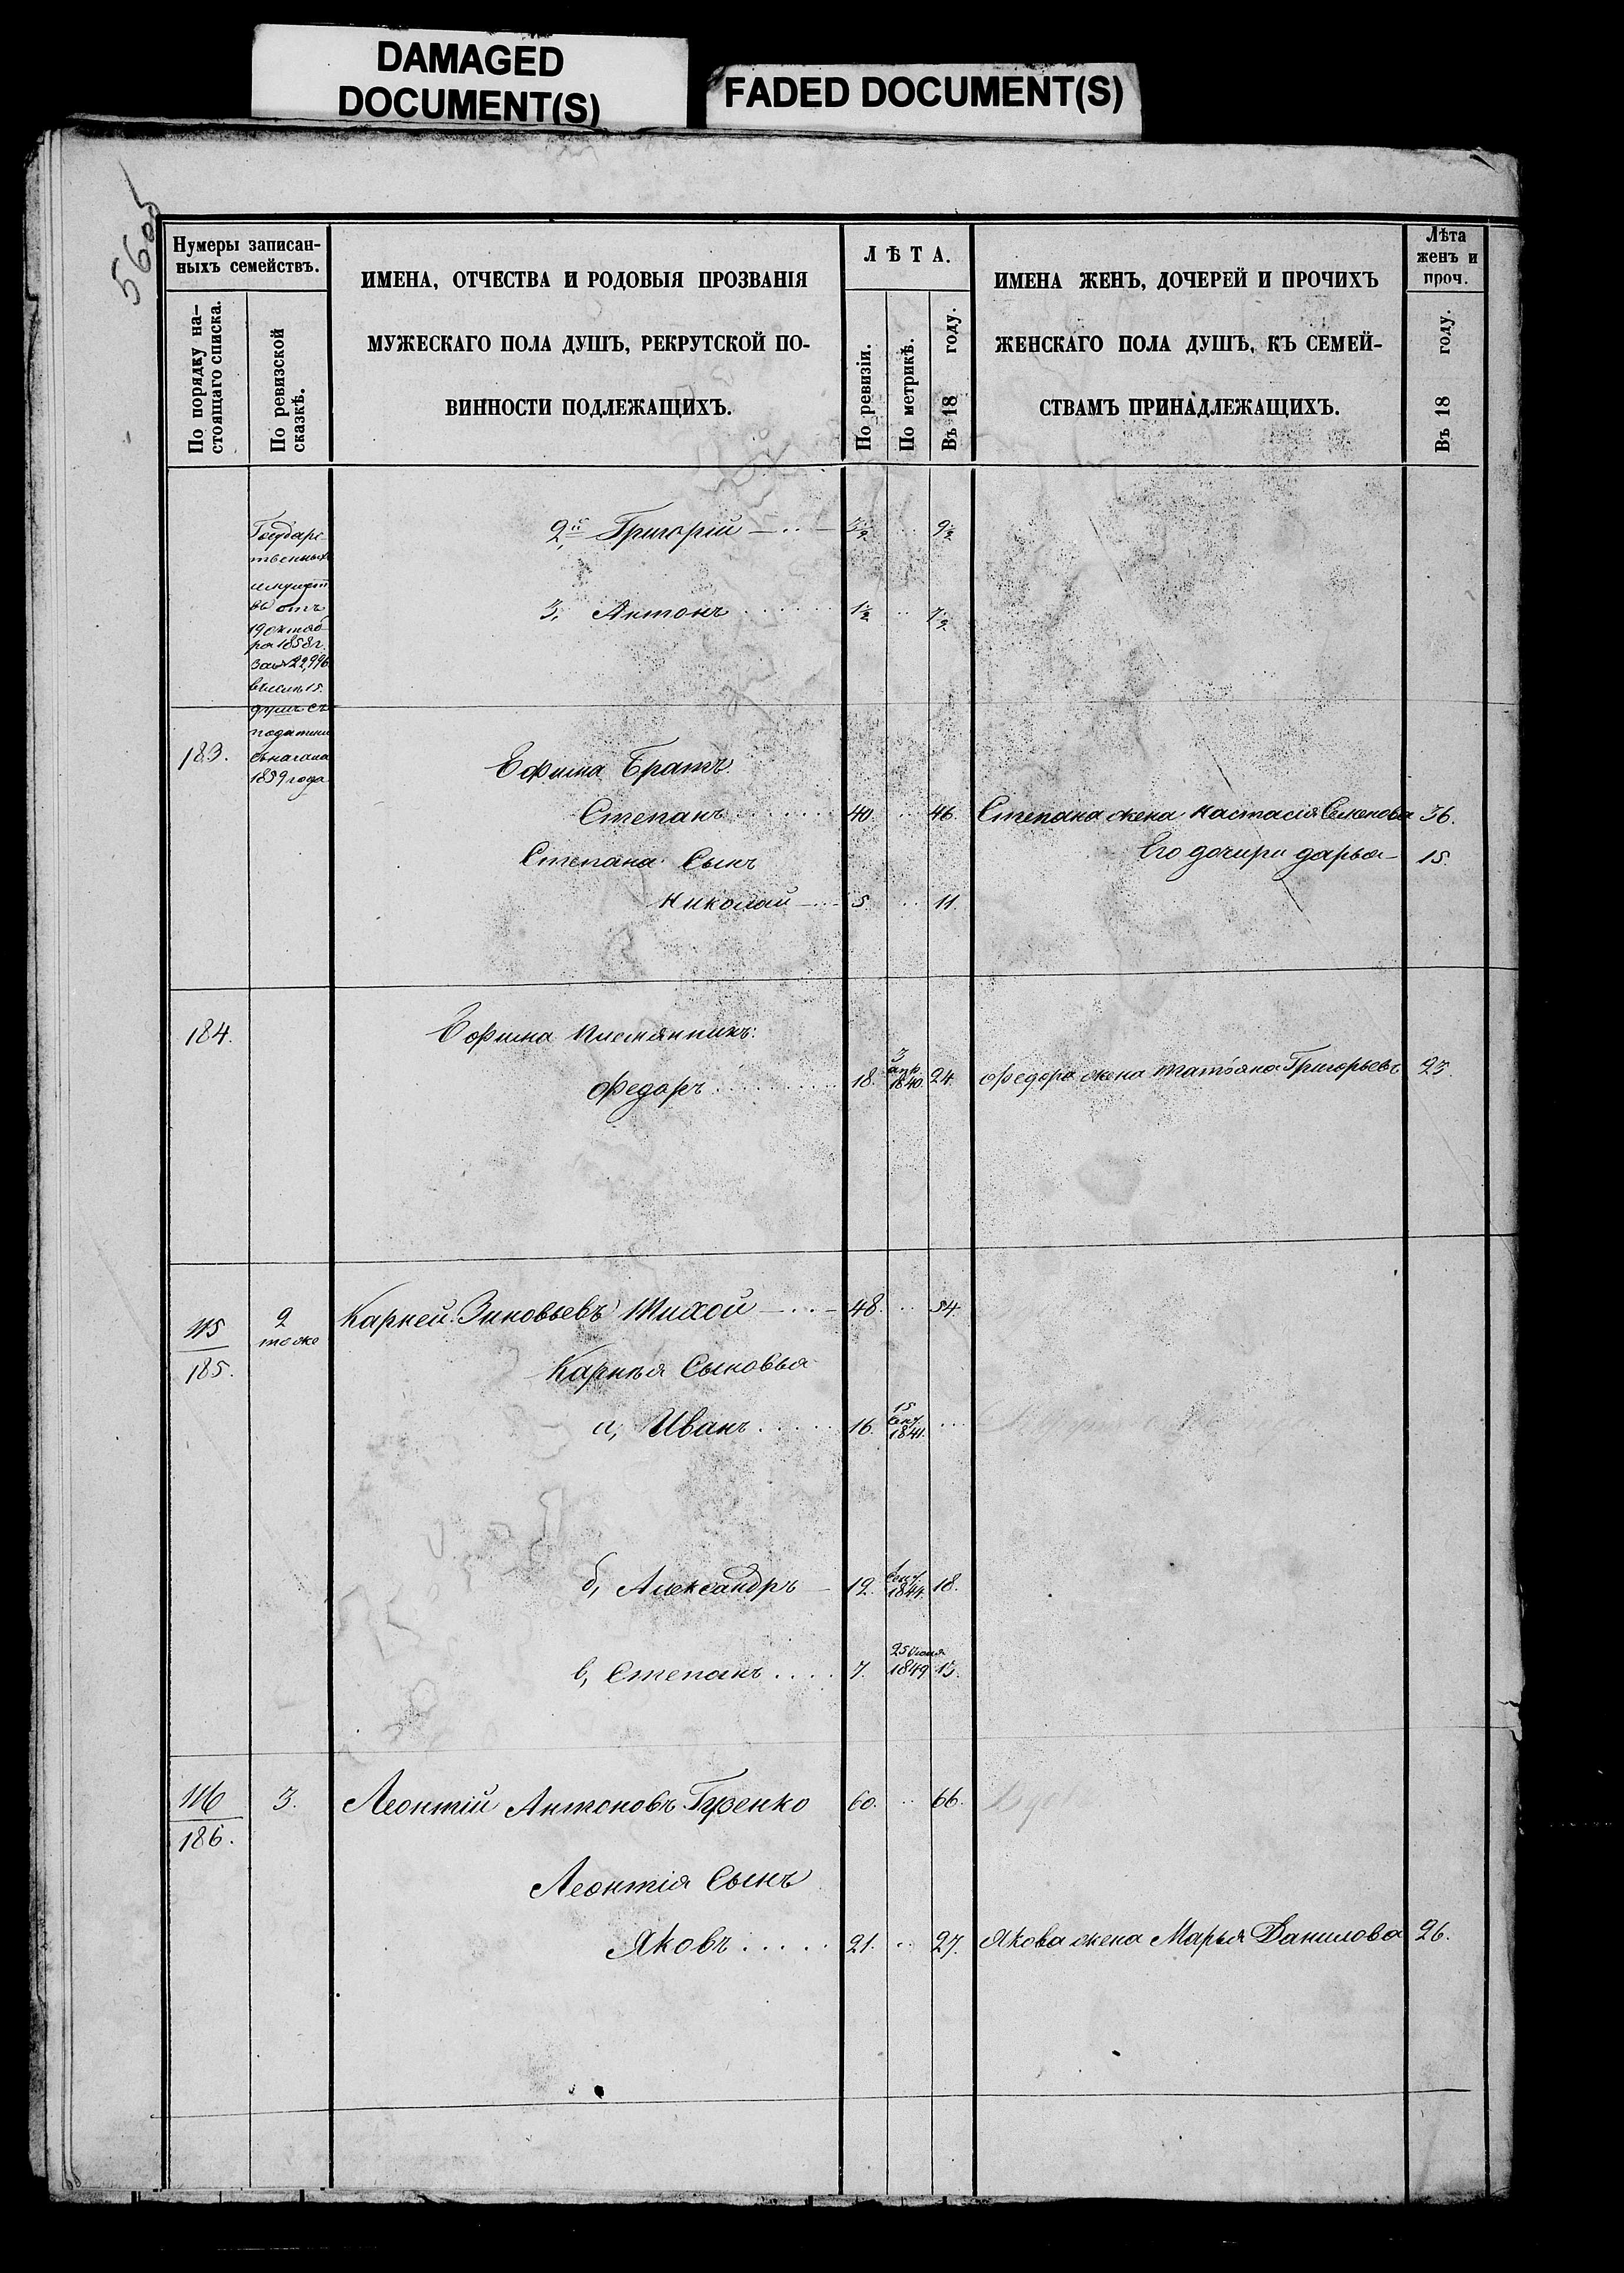 DAMAGED
DOCUMENT(S)
FADED DOCUMENT(S)
5605
Нумеры записан-
ныхъ семействъ.
По порядку на-
стоящаго списка.
По ревизской
сказкѣ.
ИМЕНА, ОТЧЕСТВА И РОДОВЫЯ ПРОЗВАНІЯ
МУЖЕСКАГО ПОЛА ДУШЪ, РЕКРУТСКОЙ ПО-
ВИННОСТИ ПОДЛЕЖАЩИХЪ.
ЛѢТА.
По ревизіи.
По метрикѣ.
Въ 18 году.
ИМЕНА ЖЕНЪ, ДОЧЕРЕЙ И ПРОЧИХЪ
ЖЕНСКАГО ПОЛА ДУШЪ, КЪ СЕМЕЙ-
СТВАМЪ ПРИНАДЛЕЖАЩИХЪ.
Лѣта
женъ и
проч.
Въ 18 году.
Государс
твенныхъ
имущест
въ отъ
19 октяб
ря 1858 г.
за № 22,996
въ числѣ 15.
душъ съ
податьми
съ начала
1859 года
2й, Григорій 3½ 9½
3, Антонъ 1½ 7½
183. Ефима Братъ
Степанъ 40. 46. Степана жена Настасія Семенова 36.
Его дочери дарья 15.
Степана Сынъ
Николай 5. 11.
184. Ефима племянникъ:
Федоръ 18. 3 апр. 1840. 24. Федора жена татьяна Григорьева 23.
115
185. 2 тоже Карней Зиновьевъ Тихой 48. 54.
Карнѣя Сыновья
а, Иванъ 16. 15 Сент. 1841.
б, Александръ 12. Сент. 1844. 18.
в, Степанъ 7. 25 Июня 1849. 13.
116
186. 3. Леонтій Антоновъ Гуренко 60. 66.
Леонтія Сынъ
Яковъ 21. 27. Якова жена Марья Данилова 26.